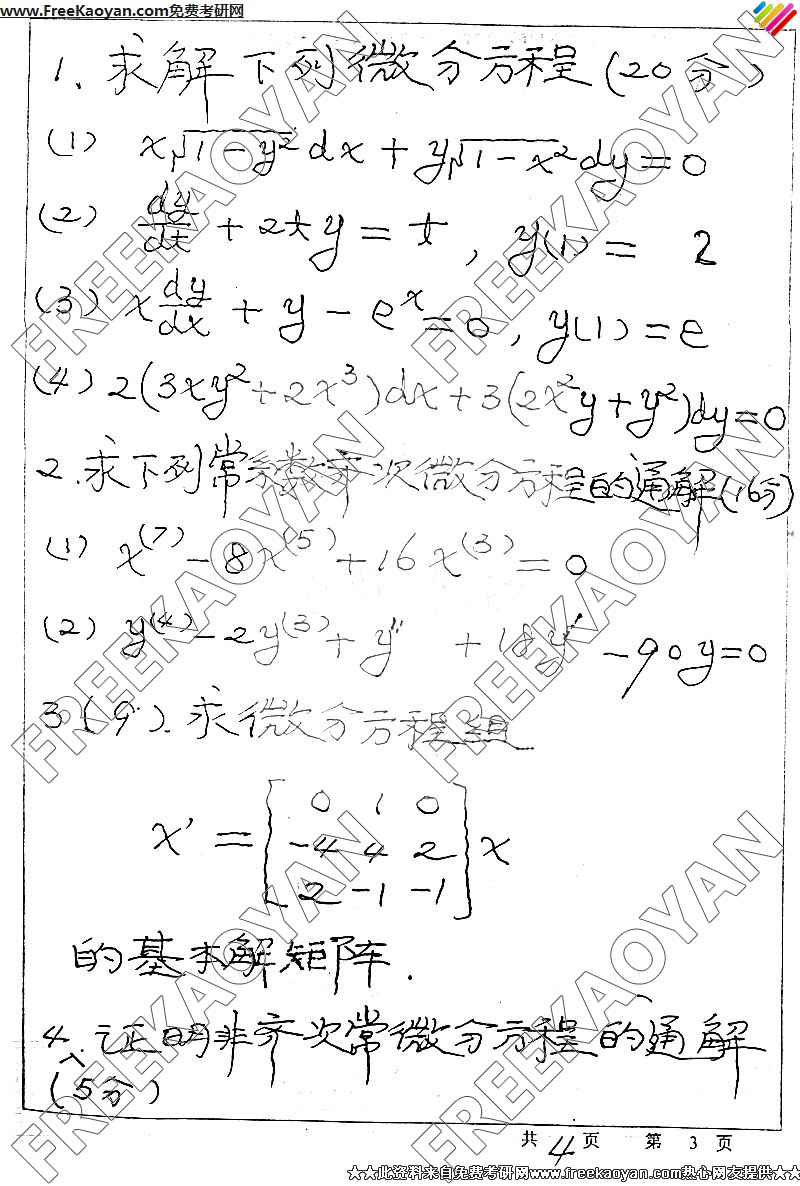 www.FreeKaoyan.com免费考研网
1. 求解下列微分方程(20分)
(1) x√(1-y²)dx + y√(1-x²)dy = 0
(2) dy/dt + 2ty = t, y(1) = 2
(3) x dy/dx + y - eˣ = 0, y(1) = e
(4) 2(3xy² + 2x³)dx + 3(2x²y + y²)dy = 0
2. 求下列常系数齐次微分方程的通解(16分)
(1) x⁽⁷⁾ - 8x⁽⁵⁾ + 16x⁽³⁾ = 0
(2) y⁽⁴⁾ - 2y⁽³⁾ + y'' + 18y' - 90y = 0
3(9). 求微分方程组
0 1 0
x' = [-4 4 2] x
2 -1 -1
的基本解矩阵.
4. 证明非齐次常微分方程的通解
(5分)
共 4 页 第 3 页
★★此资料来自免费考研网www.freekaoyan.com热心网友提供★★
FREEKAOYAN
FREEKAOYAN
FREEKAOYAN
FREEKAOYAN
FREEKAOYAN
FREEKAOYAN